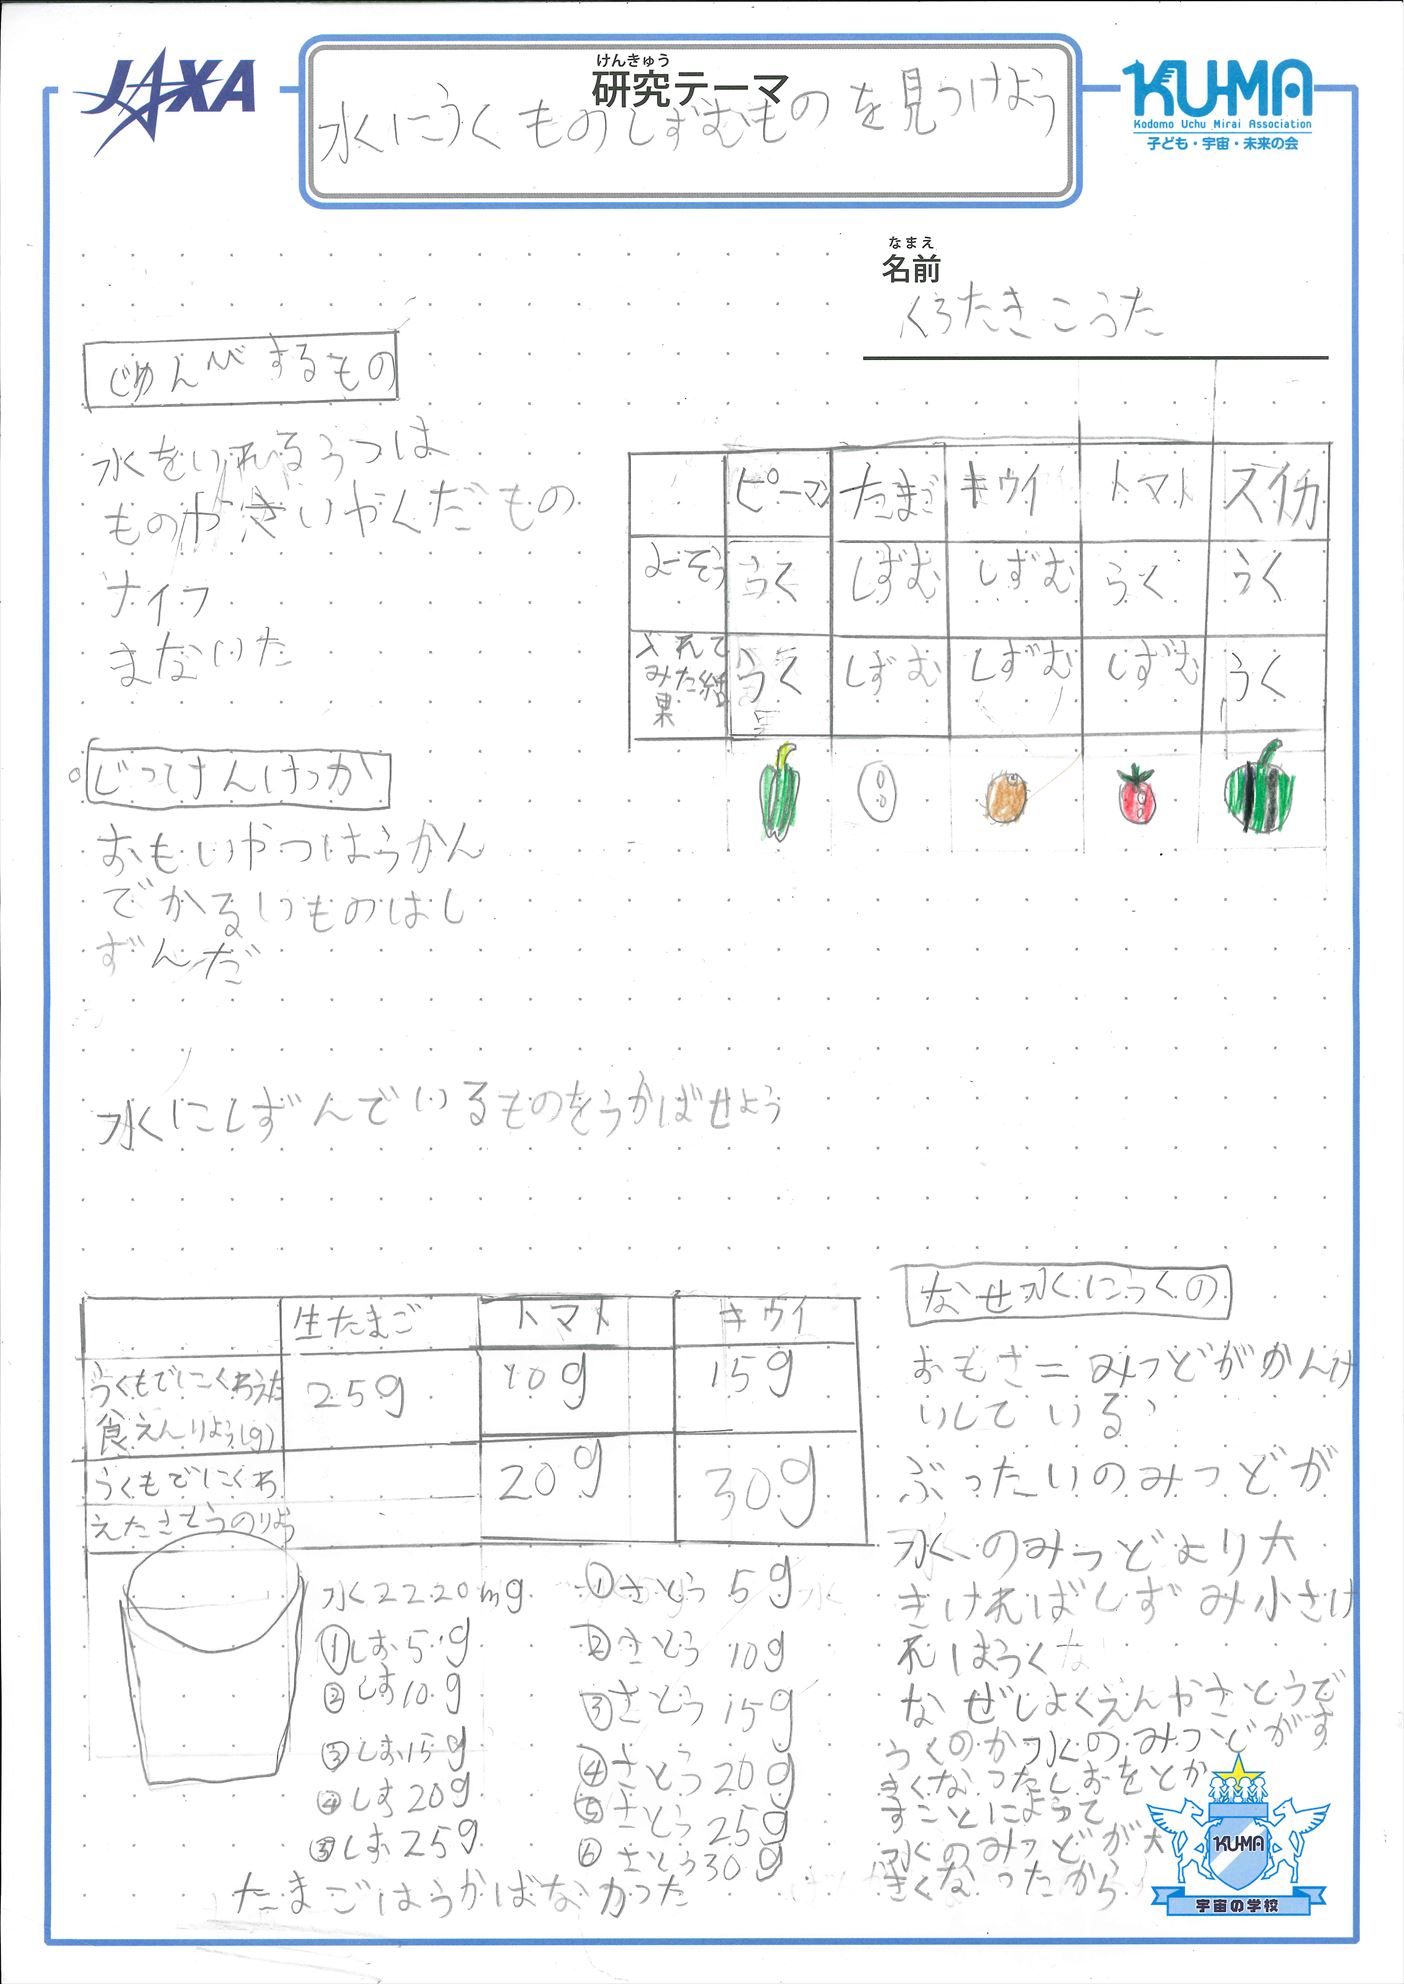 JAXA
けんきゅう
研究テーマ
水にうくものしずむものを見つけよう
KU-MA
Kodomo Uchu Mirai Association
子ども・宇宙・未来の会
なまえ
名前
くろたきこうた
じゅんびするもの
水をいれるうつは
ものやさいやくだもの
ナイフ
まないた
ピーマン たまご キウイ トマト スイカ
よそう うく しずむ しずむ うく うく
入れてみた結果 うく しずむ しずむ しずむ うく
じっけんけっか
おもいやつはうかん
でかるいものはし
ずんだ
水にしずんでいるものをうかばせよう
生たまご トマト キウイ
うくもでにくわえた
食えんりょう(g) 25g 10g 15g
うくもでにくわ
えたさとうのりょう 20g 30g
水2220mg
①しお5g
②しお10g
③しお15g
④しお20g
⑤しお25g
①さとう 5g
②さとう 10g
③さとう 15g
④さとう 20g
⑤さとう 25g
⑥さとう30g
たまごはうかばなかった
なぜ水にうくの
おもさ=みつどがかんけ
いしている
ぶったいのみつどが
水のみつどより大
きければしずみ小さけ
れはうく
なぜしよくえんやさとうで
うくのか水のみつどがす
きくなったしおをとか
すことによって
水のみつどが大
きくなったから
KUMA
宇宙の学校